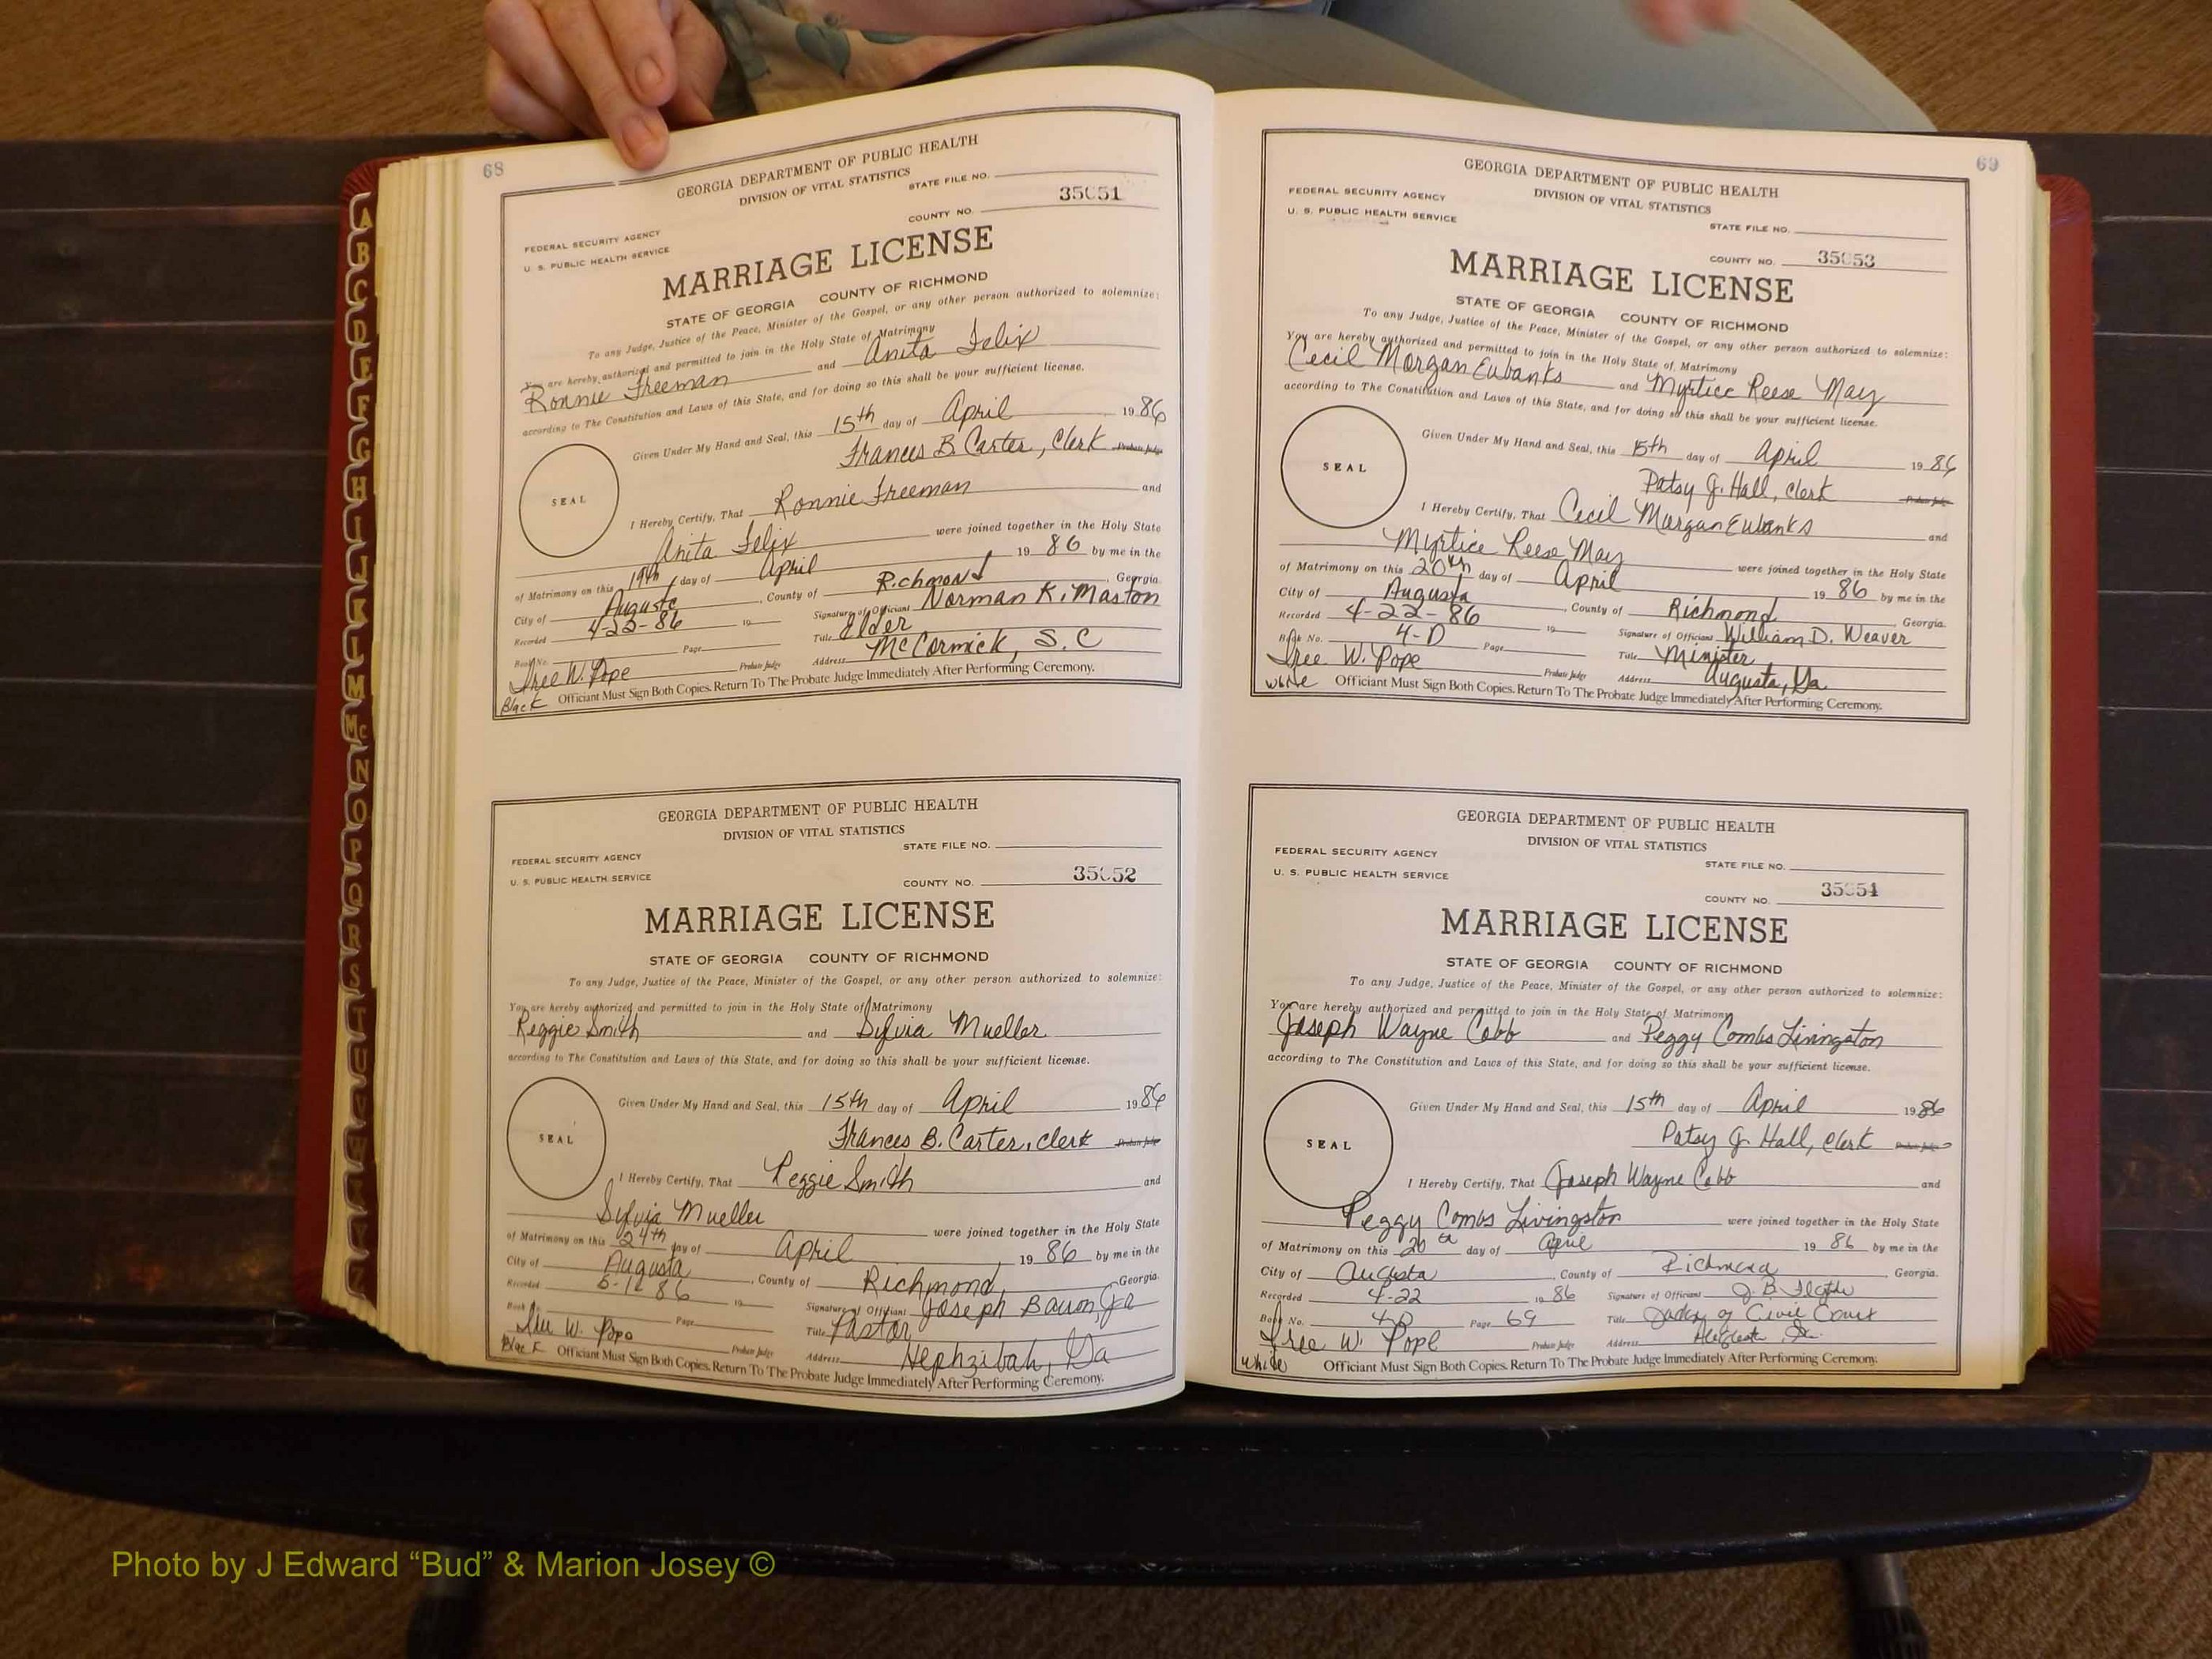 68
GEORGIA DEPARTMENT OF PUBLIC HEALTH
DIVISION OF VITAL STATISTICS
STATE FILE NO.
35051
COUNTY NO.
FEDERAL SECURITY AGENCY
U. S. PUBLIC HEALTH SERVICE
MARRIAGE LICENSE
STATE OF GEORGIA COUNTY OF RICHMOND
To any Judge, Justice of the Peace, Minister of the Gospel, or any other person authorized to solemnize:
You are hereby authorized and permitted to join in the Holy State of Matrimony
Ronnie Freeman and Anita Felix
according to The Constitution and Laws of this State, and for doing so this shall be your sufficient license.
Given Under My Hand and Seal, this 15th day of April 1986
Frances B. Carter, Clerk Probate Judge
SEAL
I Hereby Certify, That Ronnie Freeman and
Anita Felix were joined together in the Holy State
of Matrimony on this 19th day of April 19 86 by me in the
City of Augusta, County of Richmond, Georgia.
Recorded 4-22-86 19 Signature of Officiant Norman K. Maston
Book No. Page Title Elder
Iree W. Pope Probate Judge Address McCormick, S.C
Black Officiant Must Sign Both Copies. Return To The Probate Judge Immediately After Performing Ceremony.
GEORGIA DEPARTMENT OF PUBLIC HEALTH
DIVISION OF VITAL STATISTICS
STATE FILE NO.
FEDERAL SECURITY AGENCY
U. S. PUBLIC HEALTH SERVICE
COUNTY NO. 35052
MARRIAGE LICENSE
STATE OF GEORGIA COUNTY OF RICHMOND
To any Judge, Justice of the Peace, Minister of the Gospel, or any other person authorized to solemnize:
You are hereby authorized and permitted to join in the Holy State of Matrimony
Reggie Smith and Sylvia Mueller
according to The Constitution and Laws of this State, and for doing so this shall be your sufficient license.
Given Under My Hand and Seal, this 15th day of April 1986
Frances B. Carter, Clerk Probate Judge
SEAL
I Hereby Certify, That Reggie Smith and
Sylvia Mueller were joined together in the Holy State
of Matrimony on this 24th day of April 19 86 by me in the
City of Augusta, County of Richmond, Georgia.
Recorded 5-12 86 19 Signature of Officiant Joseph
Book No. Page Title Pastor
Iree W. Pope Probate Judge Address Hephzibah, Ga
Black Officiant Must Sign Both Copies. Return To The Probate Judge Immediately After Performing Ceremony.
69
GEORGIA DEPARTMENT OF PUBLIC HEALTH
DIVISION OF VITAL STATISTICS
FEDERAL SECURITY AGENCY
U. S. PUBLIC HEALTH SERVICE
STATE FILE NO.
COUNTY NO. 35053
MARRIAGE LICENSE
STATE OF GEORGIA COUNTY OF RICHMOND
To any Judge, Justice of the Peace, Minister of the Gospel, or any other person authorized to solemnize:
You are hereby authorized and permitted to join in the Holy State of Matrimony
Cecil Morgan Eubanks and Myrtice Reese May
according to The Constitution and Laws of this State, and for doing so this shall be your sufficient license.
Given Under My Hand and Seal, this 15th day of April 1986
Patsy J. Hall, Clerk Probate Judge
SEAL
I Hereby Certify, That Cecil Morgan Eubanks and
Myrtice Reese May were joined together in the Holy State
of Matrimony on this 20th day of April 19 86 by me in the
City of Augusta, County of Richmond, Georgia.
Recorded 4-22-86 19 Signature of Officiant William D. Weaver
Book No. 4-D Page Title Minister
Iree W. Pope Probate Judge Address Augusta, Ga
White Officiant Must Sign Both Copies. Return To The Probate Judge Immediately After Performing Ceremony.
GEORGIA DEPARTMENT OF PUBLIC HEALTH
DIVISION OF VITAL STATISTICS
FEDERAL SECURITY AGENCY
U. S. PUBLIC HEALTH SERVICE
STATE FILE NO.
COUNTY NO. 35054
MARRIAGE LICENSE
STATE OF GEORGIA COUNTY OF RICHMOND
To any Judge, Justice of the Peace, Minister of the Gospel, or any other person authorized to solemnize:
You are hereby authorized and permitted to join in the Holy State of Matrimony
Joseph Wayne Cobb and Peggy Combs Livingston
according to The Constitution and Laws of this State, and for doing so this shall be your sufficient license.
Given Under My Hand and Seal, this 15th day of April 1986
Patsy J. Hall, Clerk Probate Judge
SEAL
I Hereby Certify, That Joseph Wayne Cobb and
Peggy Combs Livingston were joined together in the Holy State
of Matrimony on this 20th day of April 19 86 by me in the
City of Augusta, County of Richmond, Georgia.
Recorded 4-22 19 86 Signature of Officiant J. B.
Book No. 4-D Page 69 Title Judge of Civil Court
Iree W. Pope Probate Judge Address Augusta, Ga.
White Officiant Must Sign Both Copies. Return To The Probate Judge Immediately After Performing Ceremony.
A
B
C
D
E
F
G
H
I
J
K
L
M
Mc
N
O
P
Q
R
S
T
U
V
W
Photo by J Edward “Bud” & Marion Josey ©